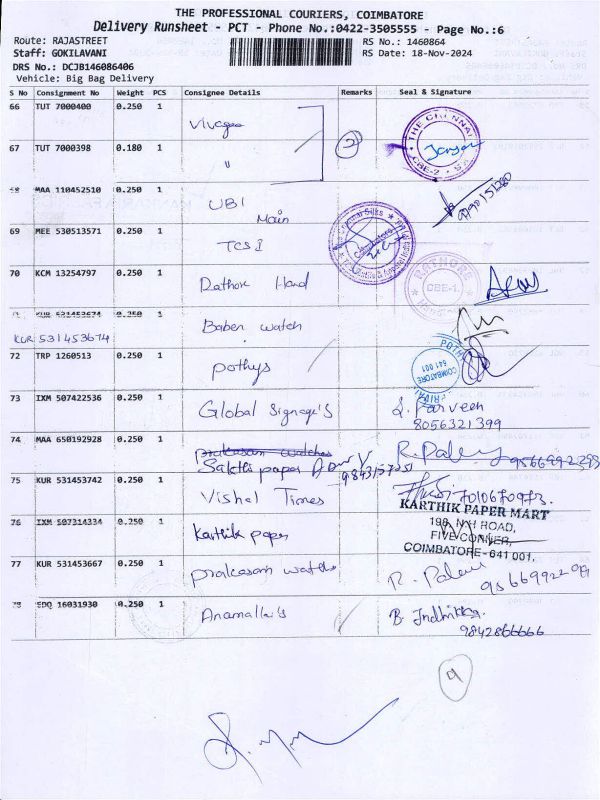 THE PROFESSIONAL COURIERS, COIMBATORE
Delivery Runsheet - PCT - Phone No.:0422-3505555 - Page No.:6
Route: RAJASTREET
RS No.: 1460864
Staff: GOKILAVANI
RS Date: 18-Nov-2024
DRS No.: DCJB146086406
Vehicle: Big Bag Delivery
S No Consignment No Weight PCS Consignee Details Remarks Seal & Signature
66 TUT 7000400 0.250 1
THE CHENNAI
CBE-2
67 TUT 7000398 0.180 1 " 2
68 MAA 110452510 0.250 1 UBI Main
69 MEE 530513571 0.250 1 TCS I
Coimbatore
70 KCM 13254797 0.250 1 Rathore Hand
RATHORE
CBE-1.
71 KUR 531453674 0.250 1 Baben watch
KUR 531453674
72 TRP 1260513 0.250 1 pothys
COIMBATORE
641 001
73 IXM 507422536 0.250 1 Global Signage's S. Parveen
8056321399
74 MAA 650192928 0.250 1 prakasam watches
Sakthi paper
75 KUR 531453742 0.250 1 Vishal Times
KARTHIK PAPER MART
76 IXM 507314334 0.250 1 Karthik paper
198, N.H ROAD,
FIVE CORNER,
COIMBATORE-641 001.
77 KUR 531453667 0.250 1 prakasam watche
78 EDQ 16031930 0.250 1 Anamallais B. Indhikka.
9842866666
9